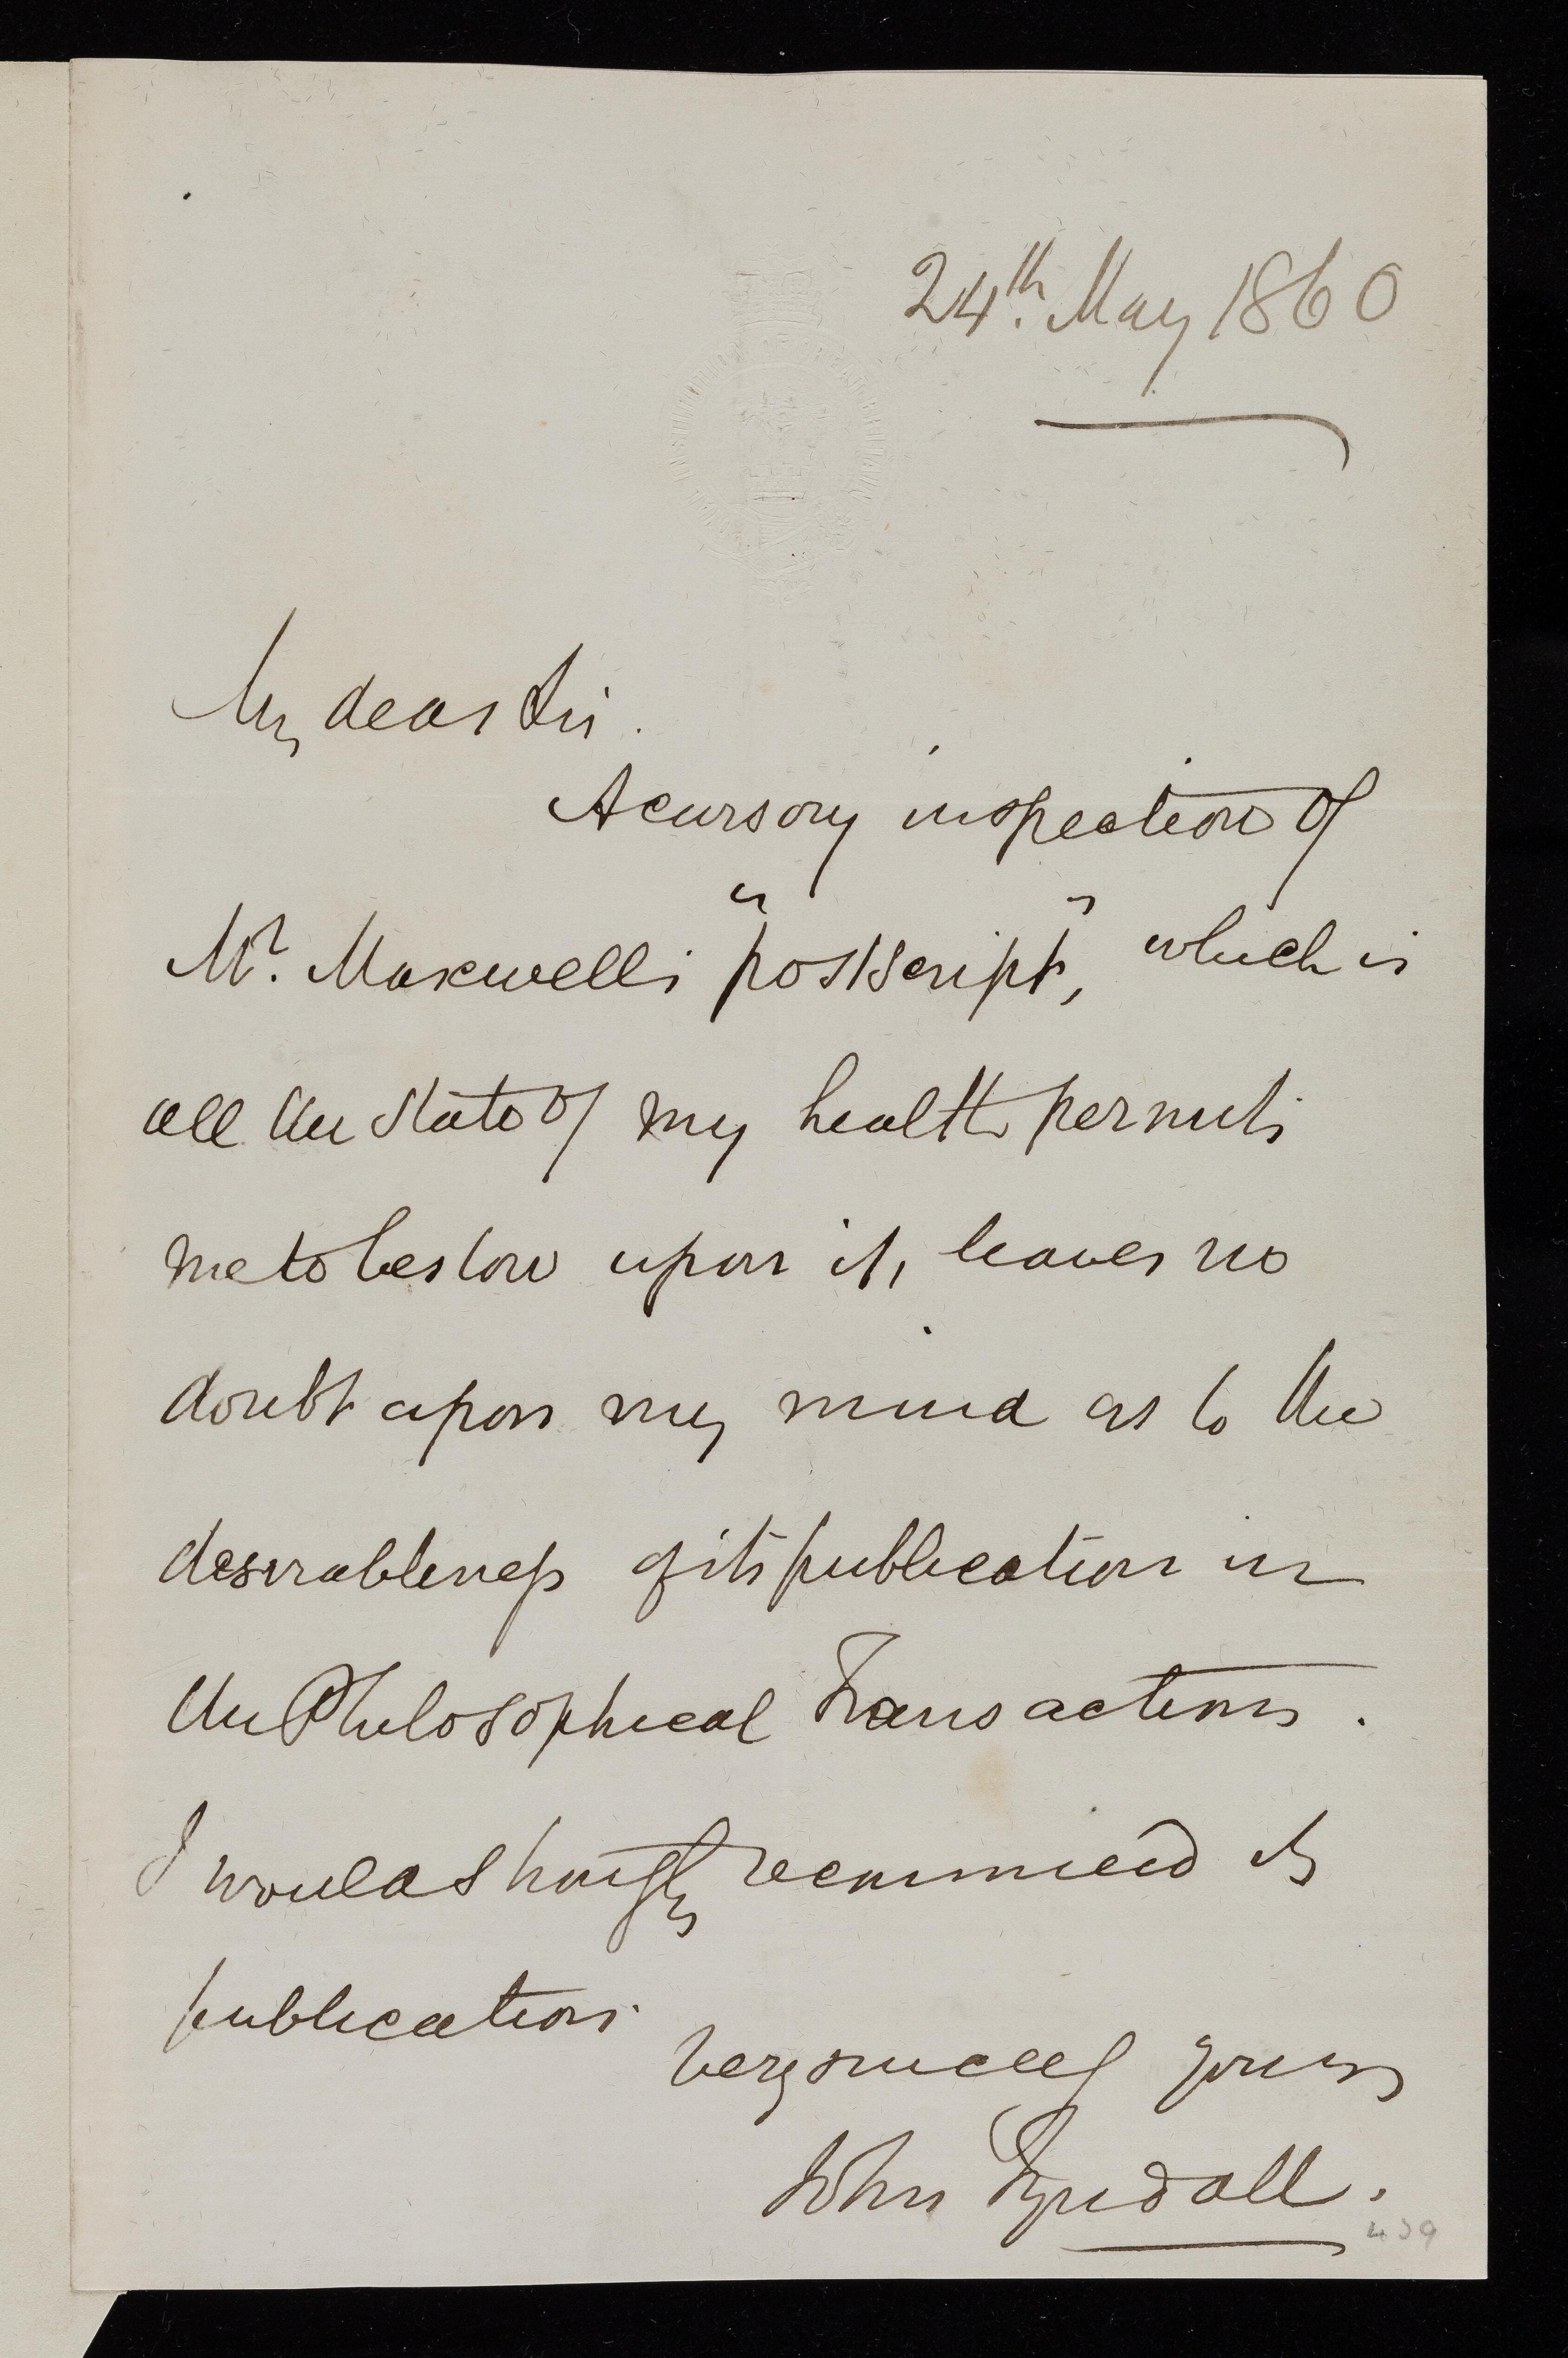 24th. May 1860
My dear Sir.
A cursory inspection of
Mr. Maxwell's "postscript", which is
all the state of my health permits
me to bestow upon it, leaves no
doubt upon my mind as to the
desirableness of its publication in
the Philosophical Transactions.
I would strongly recommend its
publication.
Very sincerely yours
John Tyndall.
439